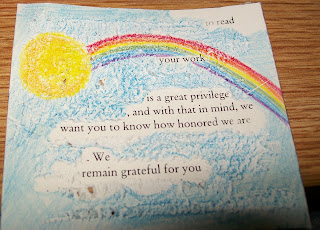 to read
your work
is a great privilege
, and with that in mind, we
want you to know how honored we are
. We
remain grateful for you